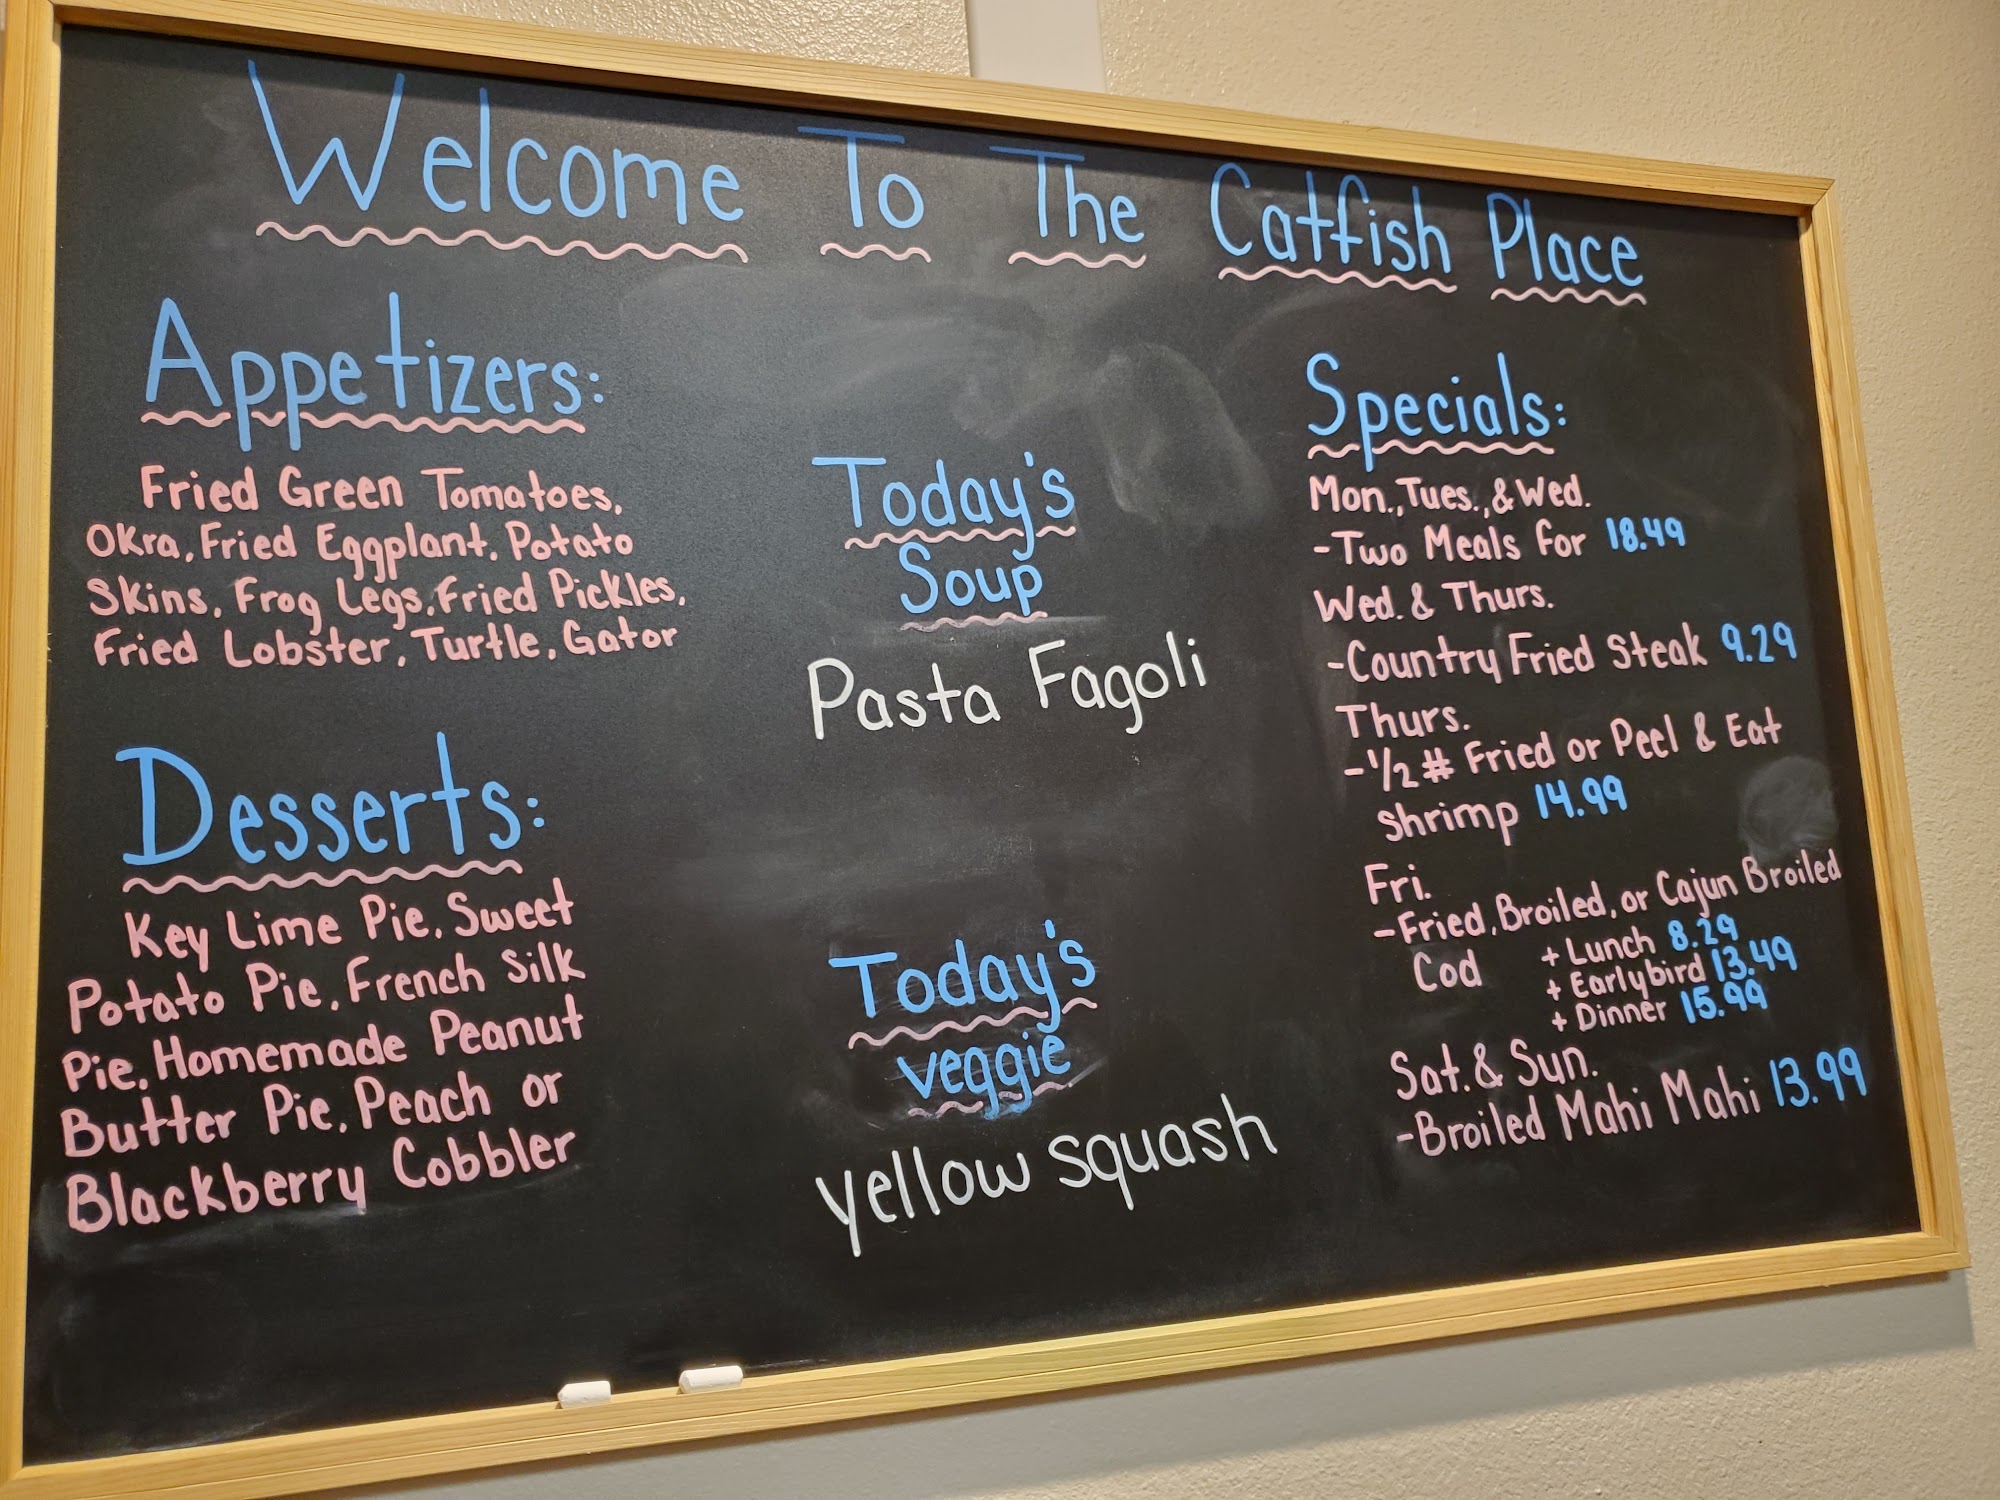 Welcome To The Catfish Place
Appetizers:
Fried Green Tomatoes,
Okra, Fried Eggplant, Potato
Skins, Frog Legs, Fried Pickles,
Fried Lobster, Turtle, Gator
Desserts:
Key Lime Pie, Sweet
Potato Pie, French Silk
Pie, Homemade Peanut
Butter Pie, Peach or
Blackberry Cobbler
Today's
Soup
Pasta Fagoli
Today's
veggie
yellow squash
Specials:
Mon., Tues., & Wed.
- Two Meals for 18.49
Wed. & Thurs.
- Country Fried Steak 9.29
Thurs.
- 1/2 # Fried or Peel & Eat
shrimp 14.99
Fri.
- Fried, Broiled, or Cajun Broiled
Cod + Lunch 8.29
+ Earlybird 13.49
+ Dinner 15.99
Sat. & Sun.
- Broiled Mahi Mahi 13.99